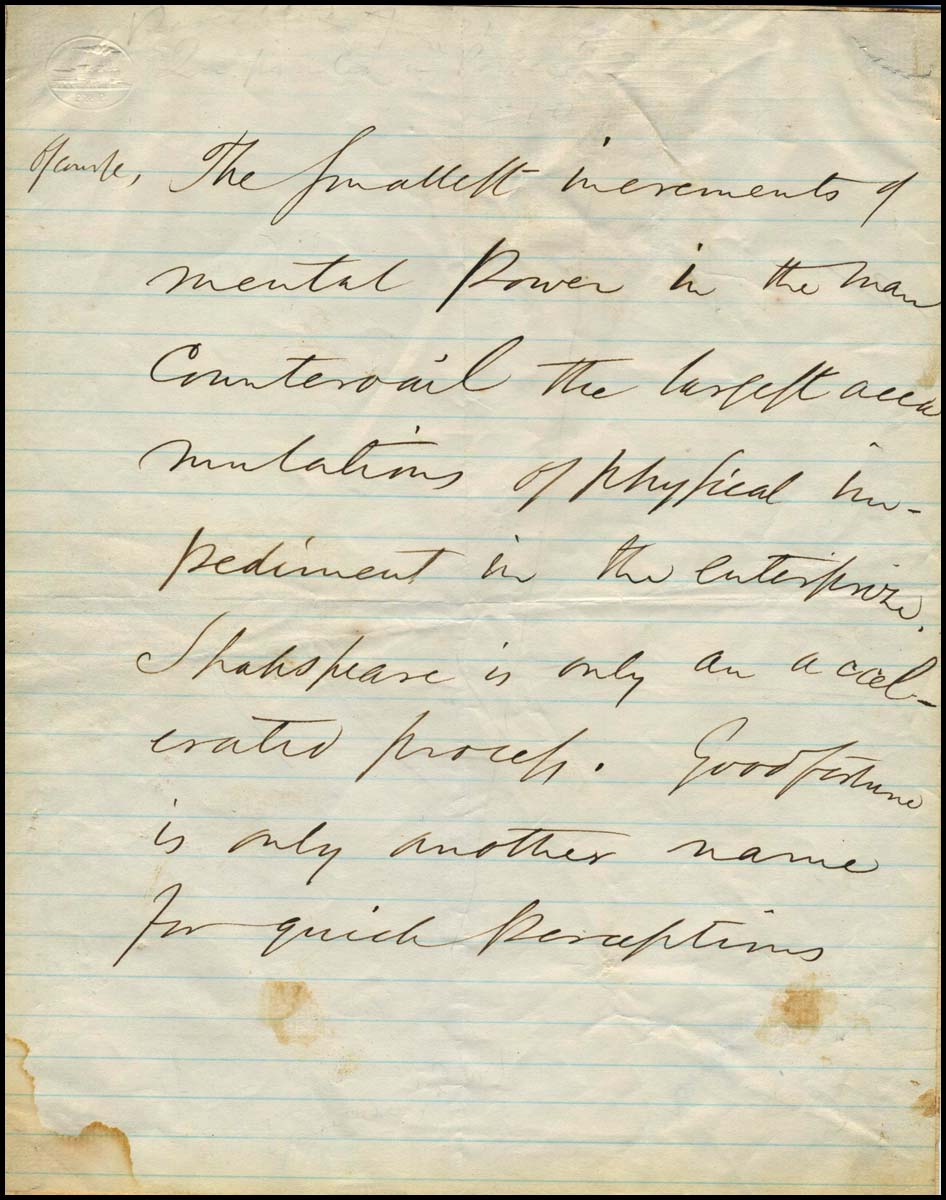 Of course, The smallest increments of
mental power in the man
Countervail the largest accu
mulations of physical im-
pediment in the enterprize.
Shakspeare is only an accel-
erated process. Good fortune
is only another name
for quick perceptions